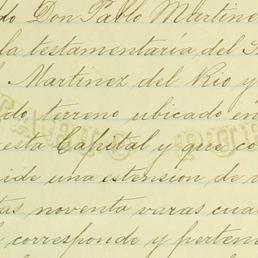 do Don Pablo Martine
la testamentaría del S
Martinez del Rio y
do terreno ubicado en
esta Capital y que co
ide una estension de
tas noventa varas cua
corresponde y perten